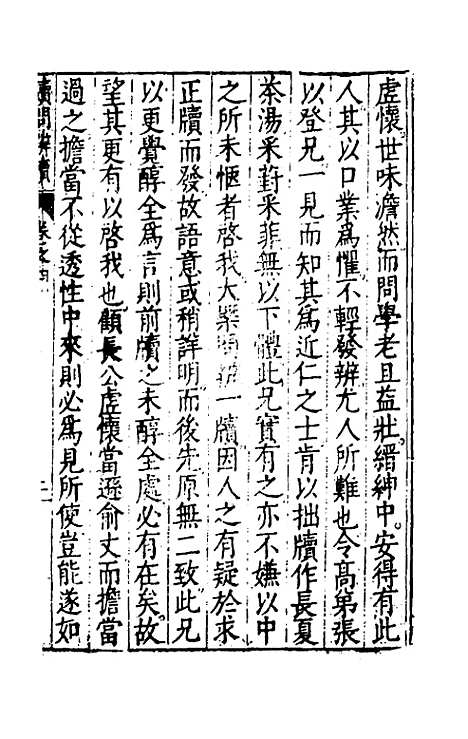 虛懷世味澹然而問學老且益壯縉紳中安得有此
人其以口業爲懼不輕發辨尤人所難也令高第張
以登兄一見而知其爲近仁之士肯以拙牘作長夏
茶湯采葑采菲無以下體此兄實有之亦不嫌以中
之所未愜者啓我大藥一牘因人之有疑於求
正牘而發故語意或稍詳明而後先原無二致此兄
以更覺醇全爲言則前牘之未醇全處必有在矣故
望其更有以啓我也顧長公虛懷當遜俞丈而擔當
過之擔當不從透性中來則必爲見所使豈能遂如
續問辨牘 卷之四